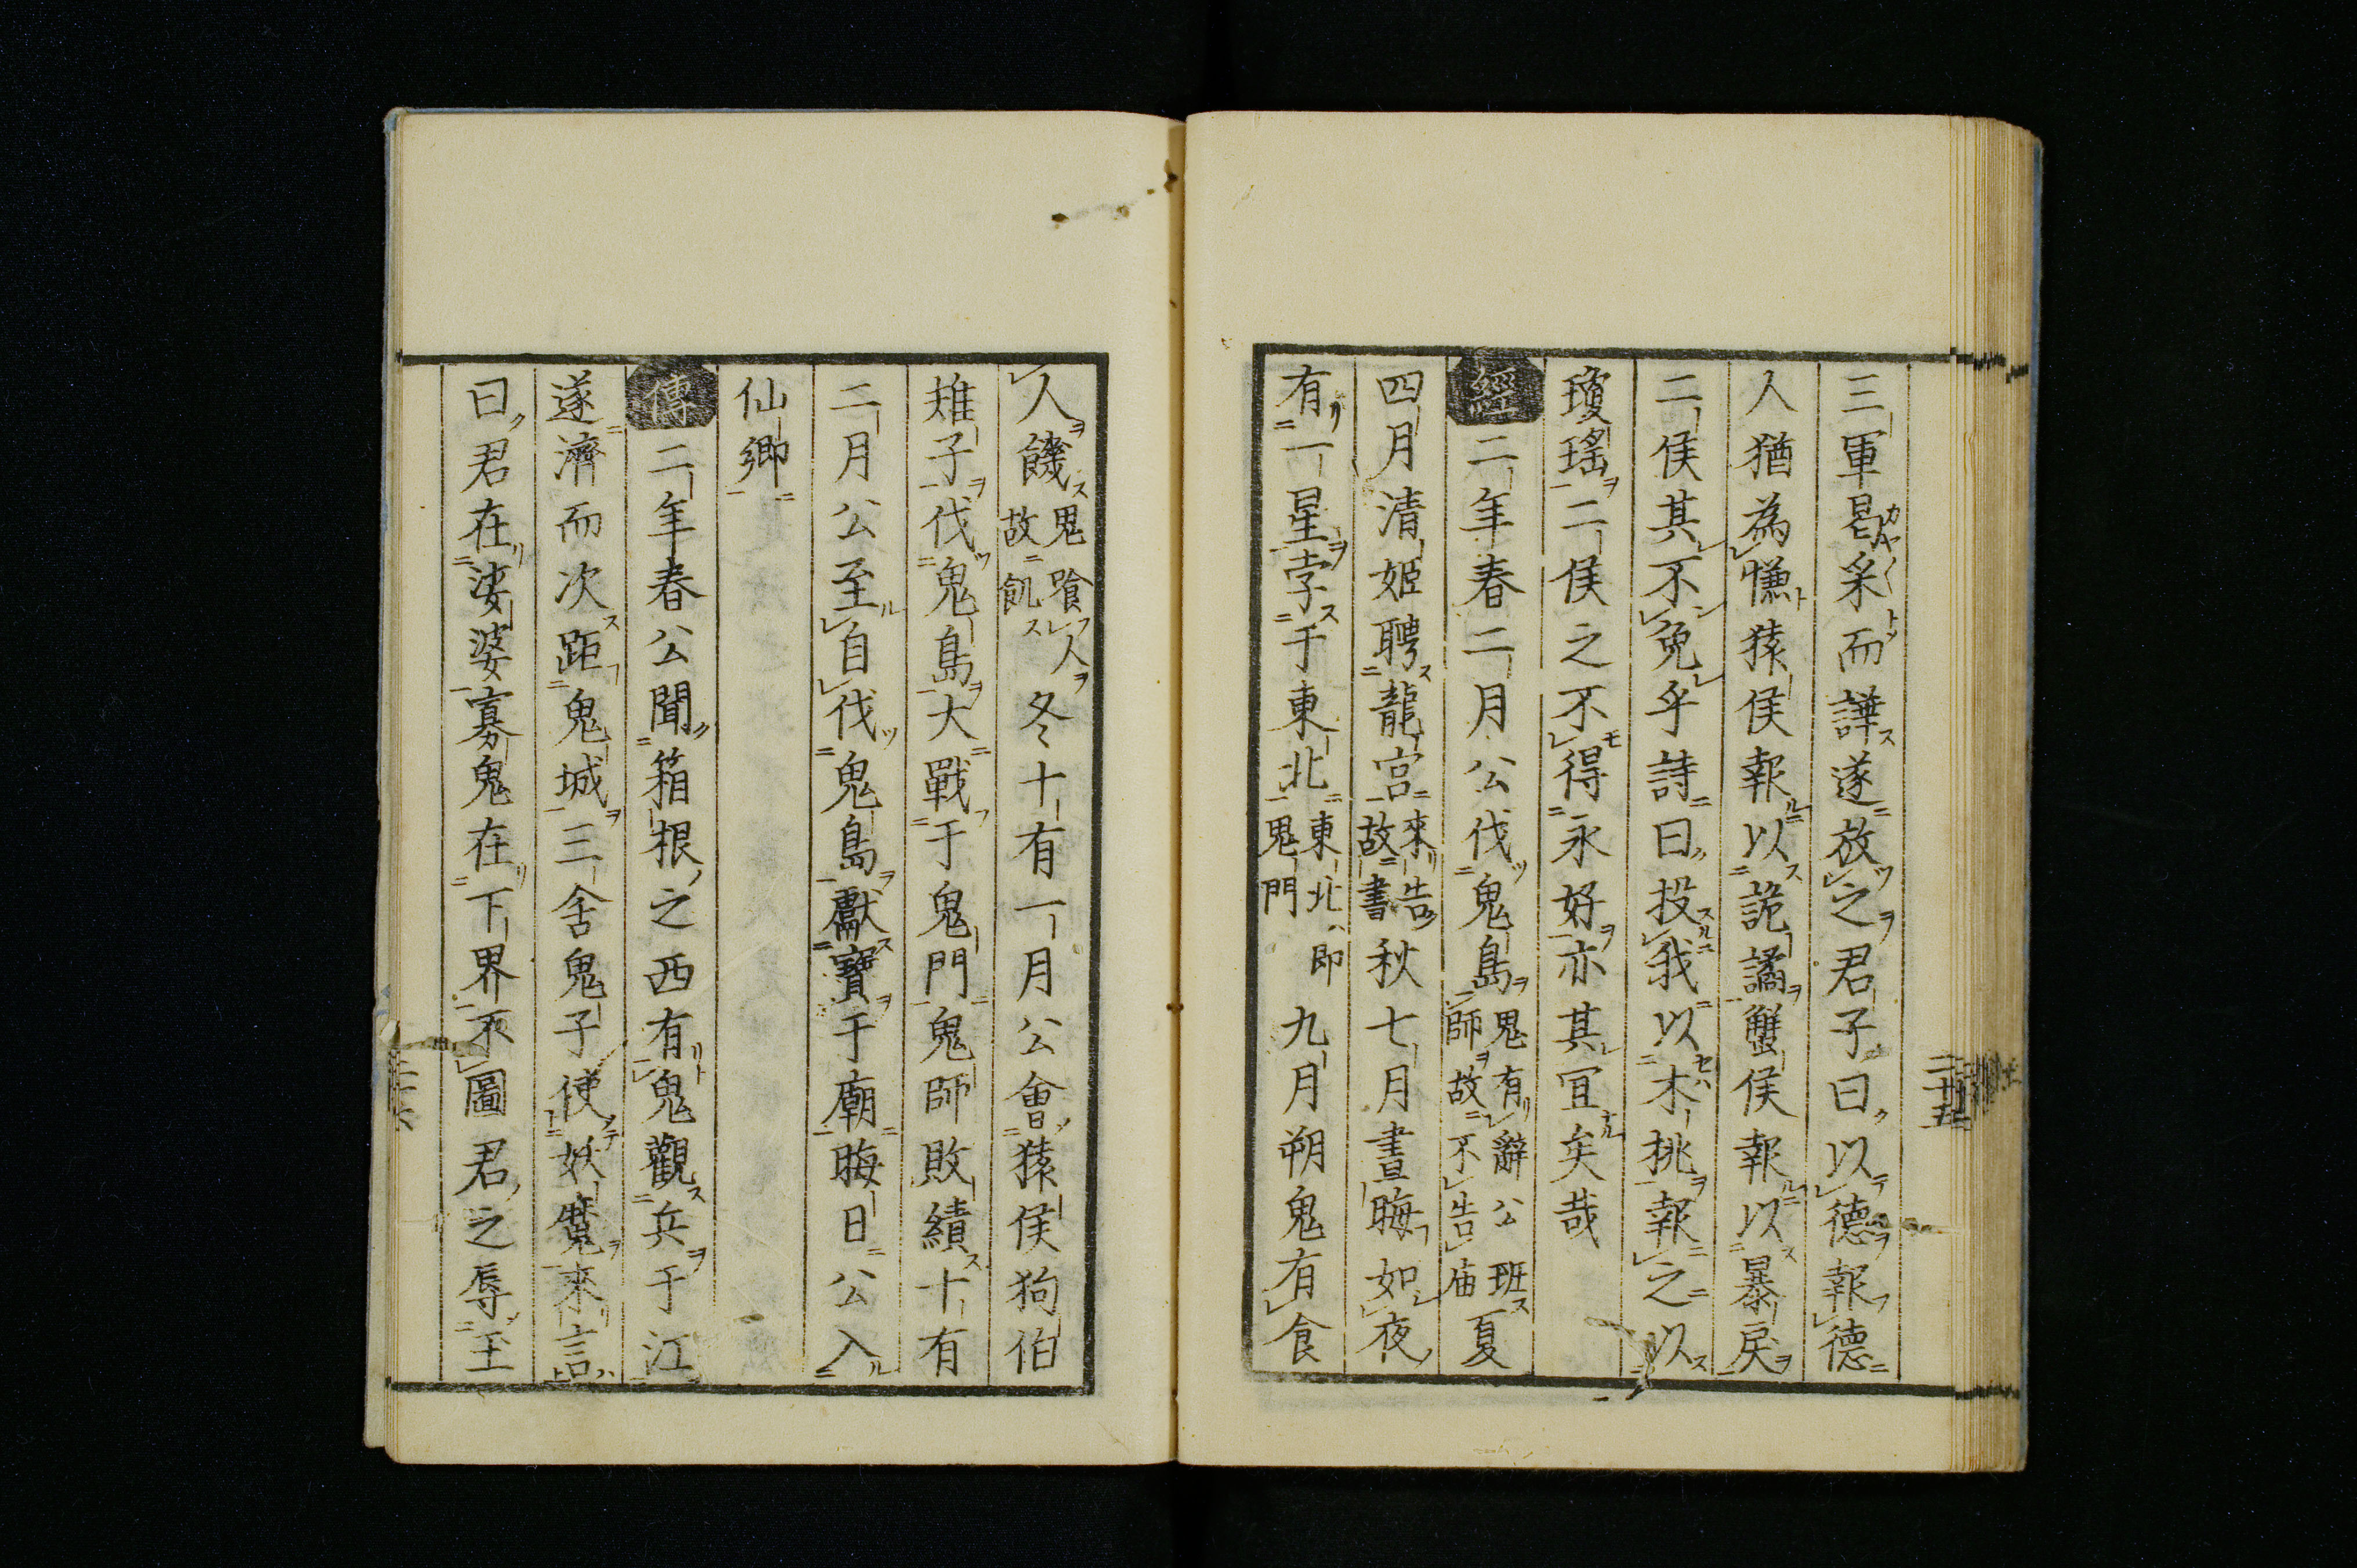 三軍曷采而譁遂放之君子曰以德報德
人猶為慊猿侯報以詭譎蟹侯報以暴戾
二侯其不免乎詩曰投我以木桃報之以
瓊瑤二侯之不得永好亦其冝矣哉
經二年春二月公伐鬼島鬼有辭公班師故不告庙夏
四月清姬聘龍宮來告故書秋七月晝晦如夜
有一星孛于東北東北即鬼門九月朔鬼有食
人饑鬼喰人故飢冬十有一月公會猿侯狗伯
雉子伐鬼島大戰于鬼門鬼師敗績十有
二月公至自伐鬼島獻寶于廟晦日公入
仙鄉
傳二年春公聞箱根之西有鬼觀兵于江
遂濟而次距鬼城三舍鬼子使妖魔來言
曰君在娑婆寡鬼在下界不圖君之辱至
二十五